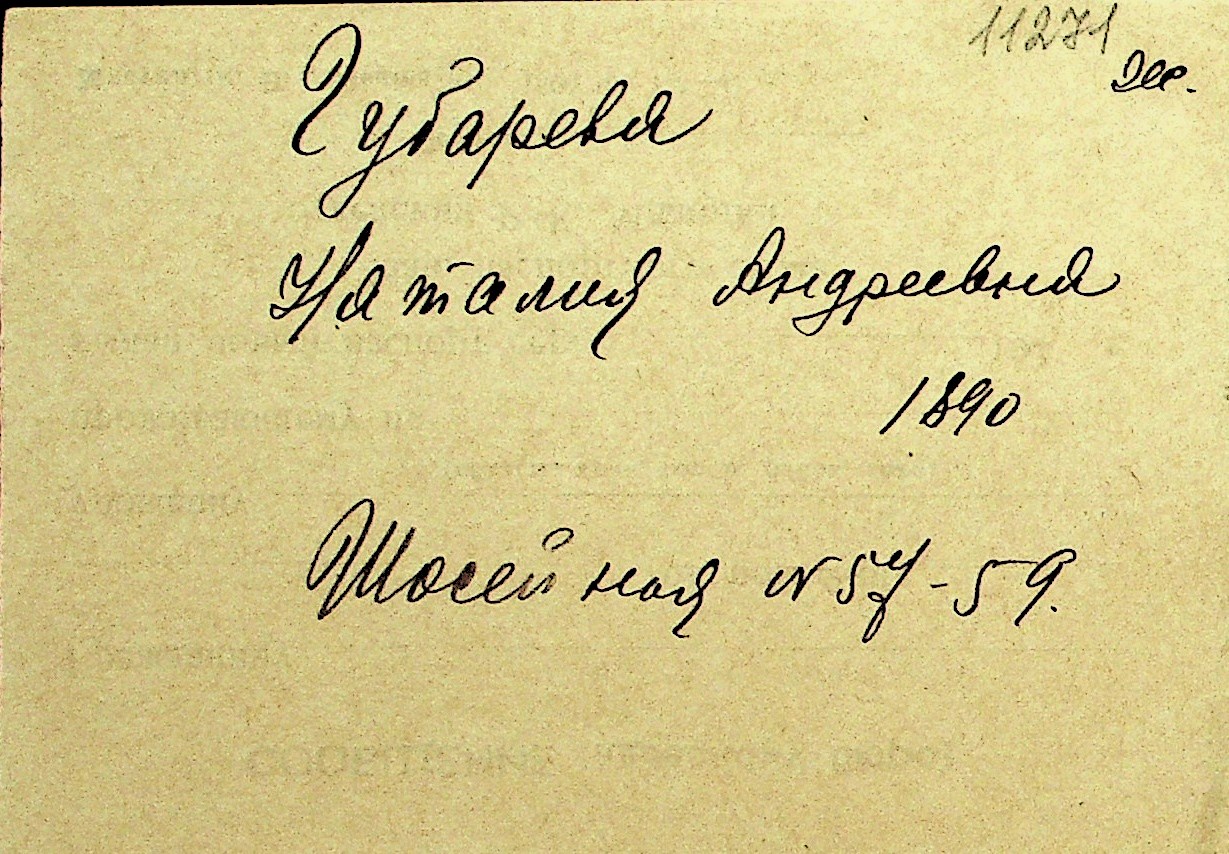 11271
Губарева
Наталия Андреевна
1890
Шосейная N 57-59.